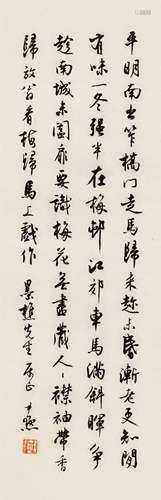 平明南出笮橋門走馬歸來趁未昏漸老更知閒
有味一冬強半在梅邨江郊車馬滿斜暉爭
趁南城未闔扉要識梅花無盡藏人〻襟袖帶香
歸放翁看梅歸馬上戲作 景樵先生属正 尹默